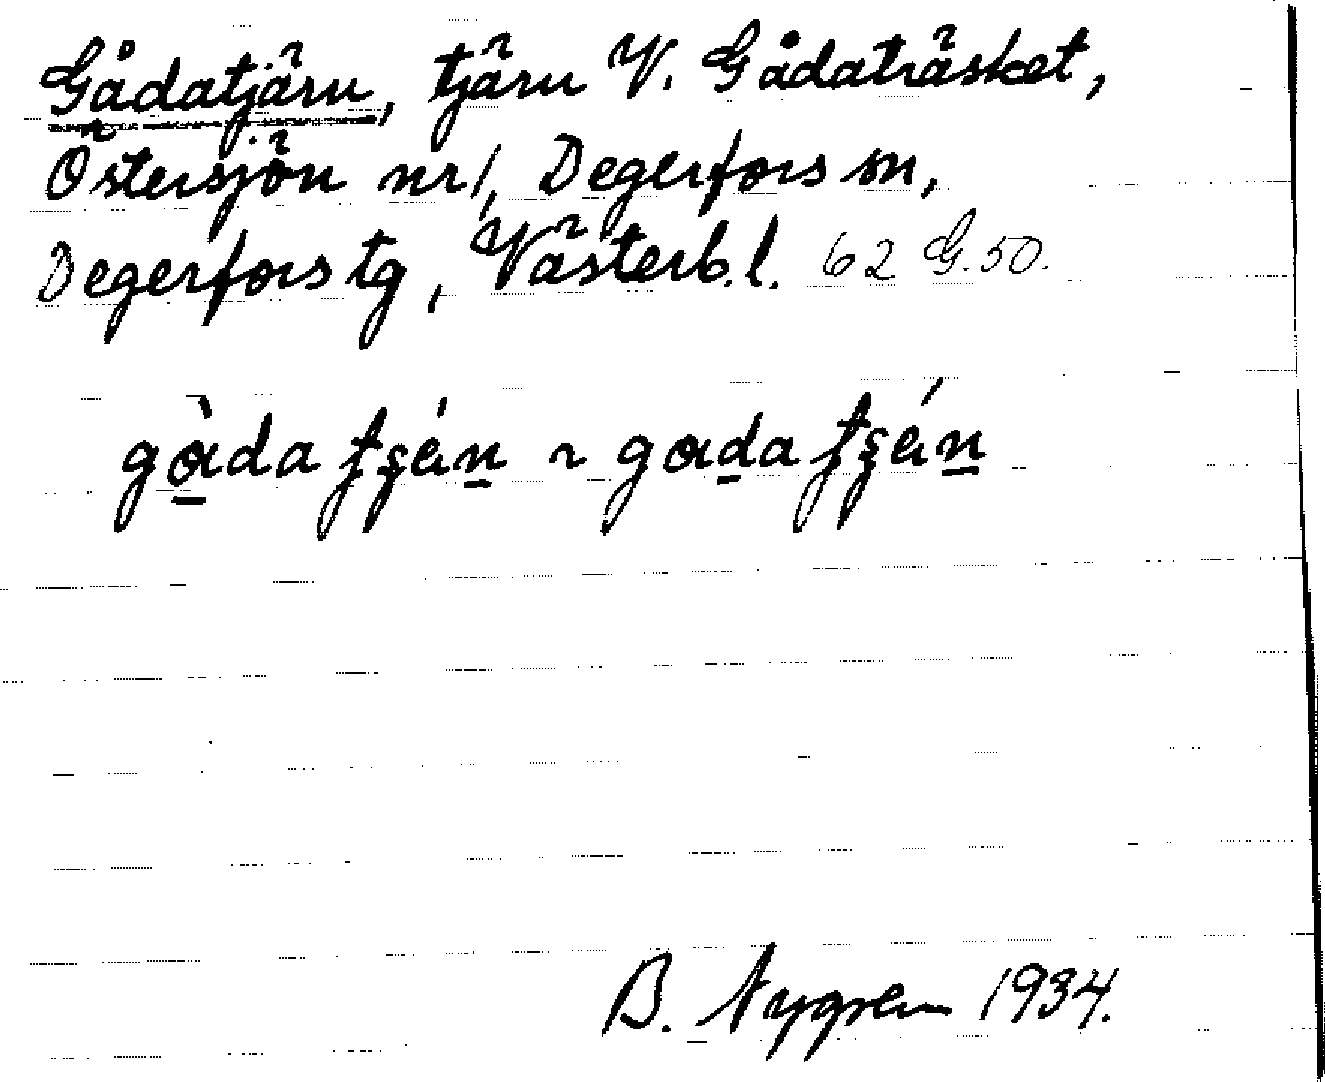 Gådatjärn, tjärn V. Gådaträsket,
Östersjön nr 1, Degerfors sn,
Degerfors tg, Västerb. l. 62 G. 50.
gàda tʂén ~ gada tʂén
B. Nygren 1934.